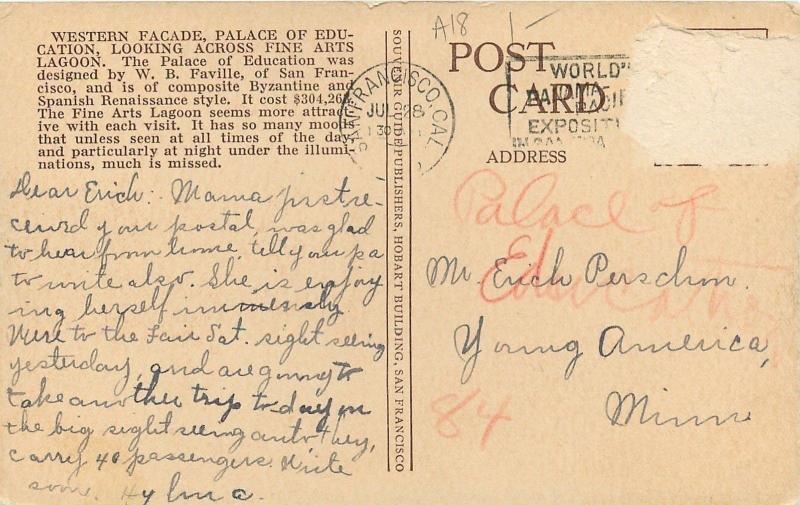 WESTERN FACADE, PALACE OF EDU-
CATION, LOOKING ACROSS FINE ARTS
LAGOON. The Palace of Education was
designed by W. B. Faville, of San Fran-
cisco, and is of composite Byzantine and
Spanish Renaissance style. It cost $304,26
The Fine Arts Lagoon seems more attract-
ive with each visit. It has so many moods
that unless seen at all times of the day,
and particularly at night under the illumi-
nations, much is missed.
Dear Erich: Mama just re-
ceived your postal, was glad
to hear from home, tell your pa
to write also. She is enjoy
ing herself immensly.
Were to the Fair Sat. sight seeing
yesterday, and are going to
take another trip to-day on
the big sight seeing auto they,
carry 40 passengers. Write
soon. Hylma.
SOUVENIR GUIDE PUBLISHERS, HOBART BUILDING, SAN FRANCISCO
A18
1-
POST
CARD
ADDRESS
SAN FRANCISCO, CAL.
JUL 28
WORLD'
PANAMA PACIFI
EXPOSITI
IN SAN
Palace of
Education
84
Mr. Erich Perschon.
Young America,
Minn